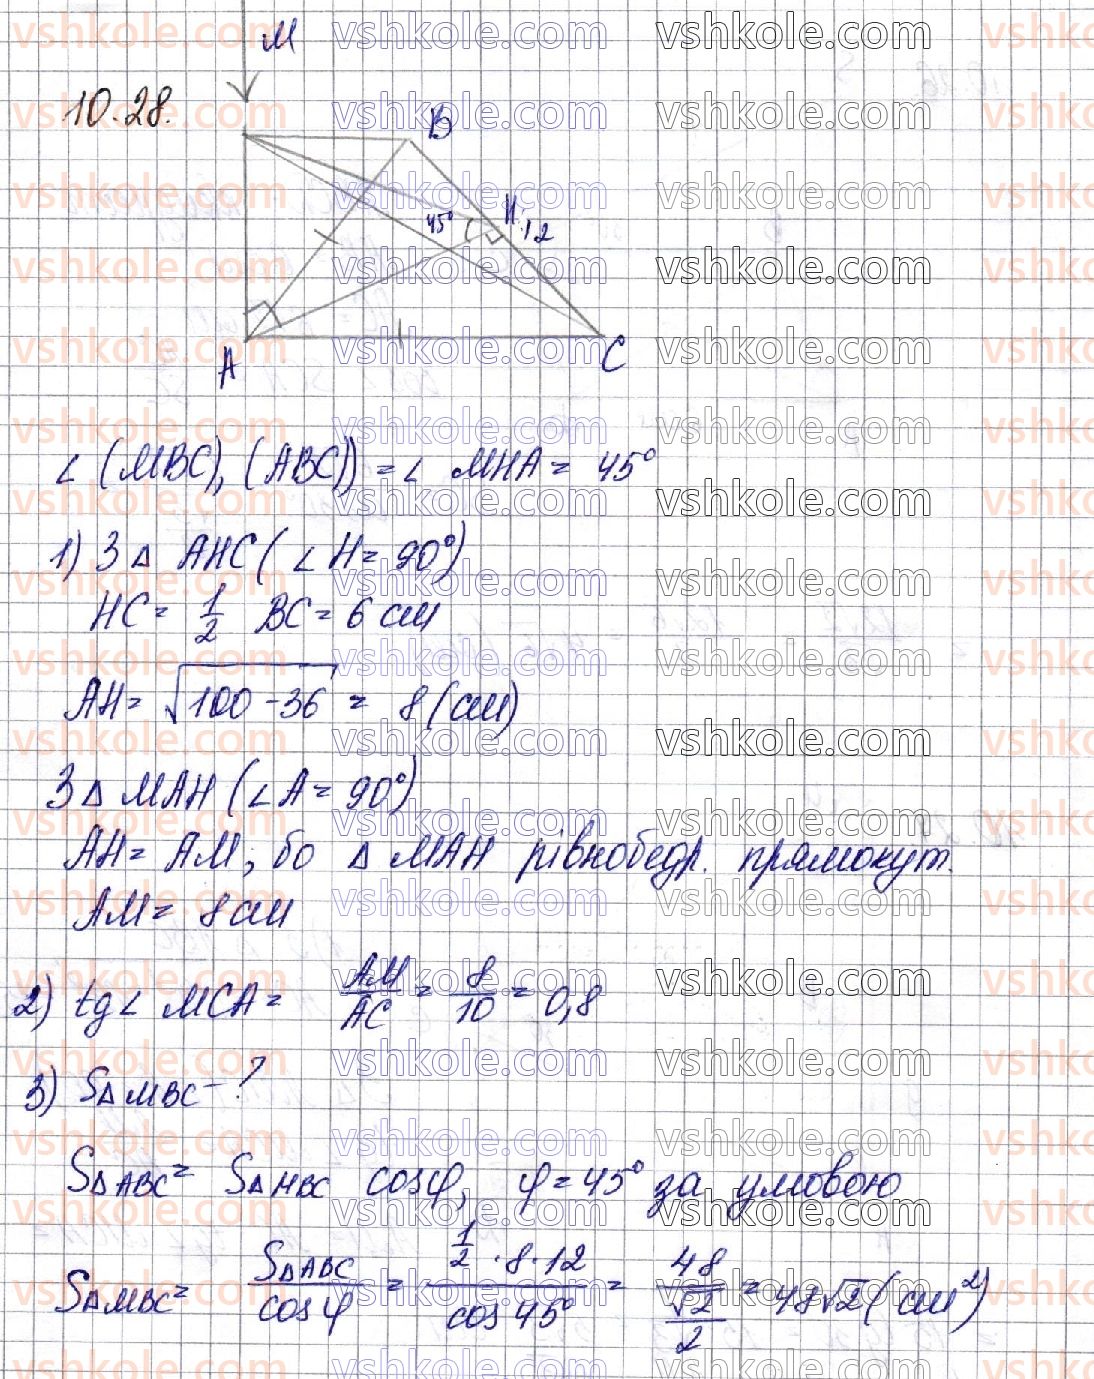 M
10.28.
B
H
45°
12
A
C
∠ (MBC), (ABC)) = ∠ MHA = 45°
1) З △ AHC (∠ H = 90°)
HC = 1/2 BC = 6 см
AH = √100 - 36 = 8 (см)
З △ MAH (∠ A = 90°)
AH = AM, бо △ MAH рівнобедр. прямокут.
AM = 8 см
2) tg ∠ MCA = AM/AC = 8/10 = 0,8
3) S△MBC - ?
S△ABC = S△MBC cos φ, φ = 45° за умовою
S△MBC = S△ABC / cos φ = (1/2 · 8 · 12) / cos 45° = 48 / (√2/2) = 48√2 (см²)
vshkole.com